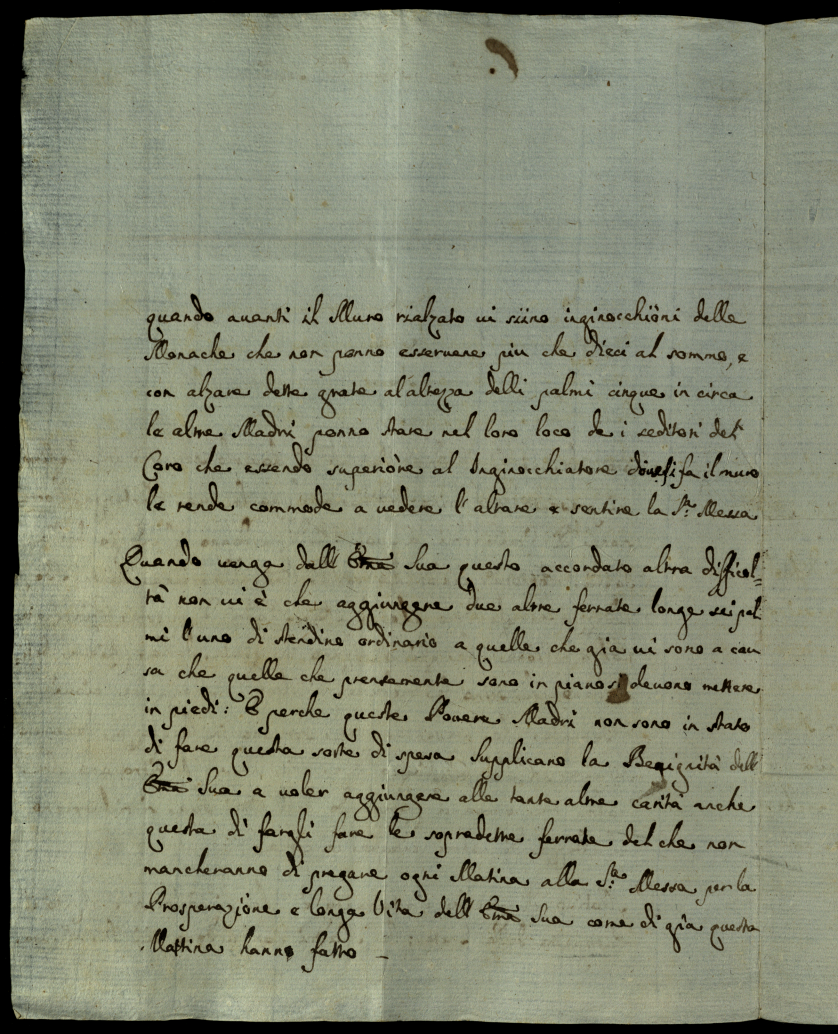 quando auanti il Muro rialzato ui siino inginocchioni delle
Monache che non ponno esseruene piu che dieci al sommo, e
con alzare dette grate al altezza delli palmi cinque in circa
le altre Madri ponno stare nel loro loco de i seditori del
Coro che essendo superiore al Inginocchiatore doue si fa il muro
le rende commode a uedere l'altare e sentire la S.ta Messa
Quando uenga dall Em̃a Sua questo accordato altra difficol=
tà non ui è che aggiungere due altre ferrate longe sei pal
mi l'una di stendino ordinario a quelle che gia ui sono a cau
sa che quelle che presamente sono in piano si deuono mettere
in piedi: E perche queste Pouere Madri non sono in stato
di fare questa sorte di spesa Supplicano la Benignità dell
Em̃a Sua a uoler aggiungere alle tante altre carità anche
questa di fargli fare le sopradette ferrate del che non
mancheranno di pregare ogni Matina alla S.ta Messa per la
Prosperazione e longa Vita dell Em̃a Sua come di già questa
Mattina hanno fatto –